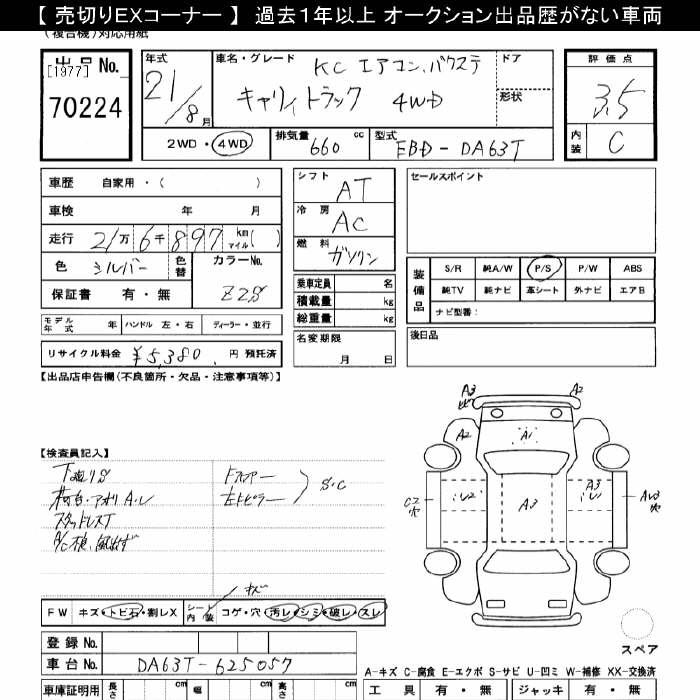 【 売切りＥＸコーナー 】 過去１年以上 オークション出品歴がない車両
(複合機)対応用紙
出品 No.
[1977]
70224
年式
21/8月
車名・グレード
KC エアコン、パワステ
キャリィトラック 4WD
ドア
形状
評価点
3.5
内装
C
2WD・4WD
排気量 660 cc
型式 EBD-DA63T
車歴 自家用・( )
車検 年 月
走行 21万6千897 km マイル( )
色 シルバー 色替
カラーNo.
Z2S
保証書 有・無
モデル年式 年 ハンドル 左・右 ディーラー・並行
リサイクル料金 ¥5,380. 円 預託済
シフト
AT
冷房
AC
燃料
ガソリン
乗車定員 名
積載量 kg
総重量 kg
名変期限
月 日
セールスポイント
装備品
S/R 純A/W P/S P/W ABS
純TV 純ナビ 革シート 外ナビ エアB
ナビ型番：
後日品
【出品店申告欄(不良箇所・欠品・注意事項等)】
【検査員記入】
下廻りS
荷台・アオリ A・U
スタッドレスT
S・C
A3
A2
A2
A1
A3
U2
A3
U
C2
穴
AU3
穴
キズ
FW キズ・トビ石・割レX
シート内装 コゲ・穴・汚レ・シミ・破レ・スレ
登録 No.
車台 No. DA63T-625057
スペア
A-キズ C-腐食 E-エクボ S-サビ U-凹ミ W-補修 XX-交換済
車庫証明用 長さ cm 幅 cm 高さ cm
工具 有・無 ジャッキ 有・無